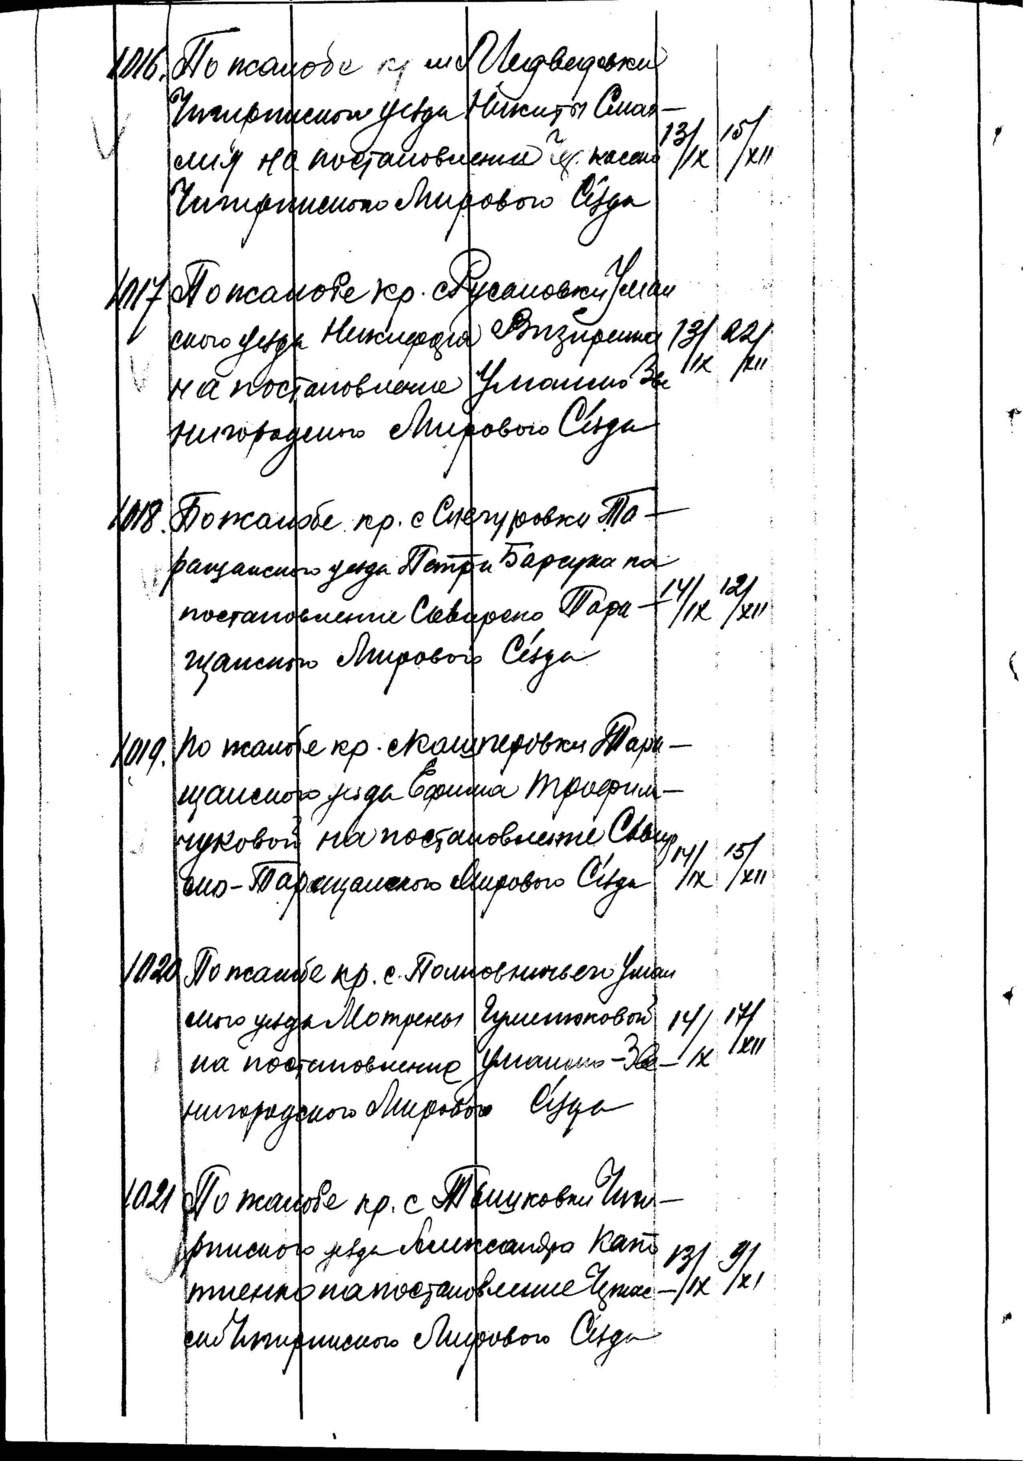 1016. По жалобе кр. м. Медведовки
Чигиринского уезда Никиты
на постановление
Чигиринского Мирового Съезда
13/IX 15/XII
1017 По жалобе кр. с Русаловки Уман
ского уезда Никифора Визиренка 13/IX 22/XII
на постановление Уманско Зве
нигородского Мирового Съезда
1018. По жалобе кр. с Снегуровки Та-
ращанского уезда Петра Барсука на
постановление Сквирско Тара- 14/IX 12/XII
щанского Мирового Съезда
1019. По жалобе кр. с Кашперовки Тара-
щанского уезда Ефима Трофим-
чуковой на постановление Сквир
ско-Таращанского Мирового Съезда 14/IX 15/XII
1020 По жалобе кр. с. Полковничьего Уман
ского уезда Мотрены 14/IX 17/XII
на постановление Уманско-Зве-
нигородского Мирового Съезда
1021 По жалобе кр. с Чиги-
ринского уезда Александра
на постановление Черкас- 13/IX 9/XI
ско Чигиринского Мирового Съезда